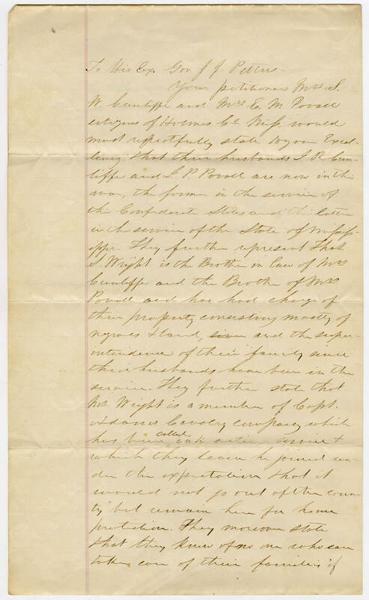 To His Ex Gov J J Pettus
Your petitioners Mrs S.
W. Cunliffe and Mrs E. M. Powell
citizens of Holmes Co Miss would
most respectfully state to your Excel-
lency that their husbands J R Cun-
liffe and J. P. Powell are now in the
war, the former in the service of
the Confederate States and the latter
in the service of the State of Missis-
sippi. They further represent that
J Wright is the Brother in law of Mrs
Cunliffe and the Brother of Mrs
Powell and has had charge of
their property consisting mostly of
negroes & land, and the super-
intendence of their family since
their husbands have been in the
service. They further state that
Mr Wright is a member of Capt.
Adams Cavalry company which
has been called into service &
which they learn he joined un-
der the expectation that it
would not go out of the coun-
ty but remain here for home
protection. They moreover state
that they know of no one who can
take care of their families if